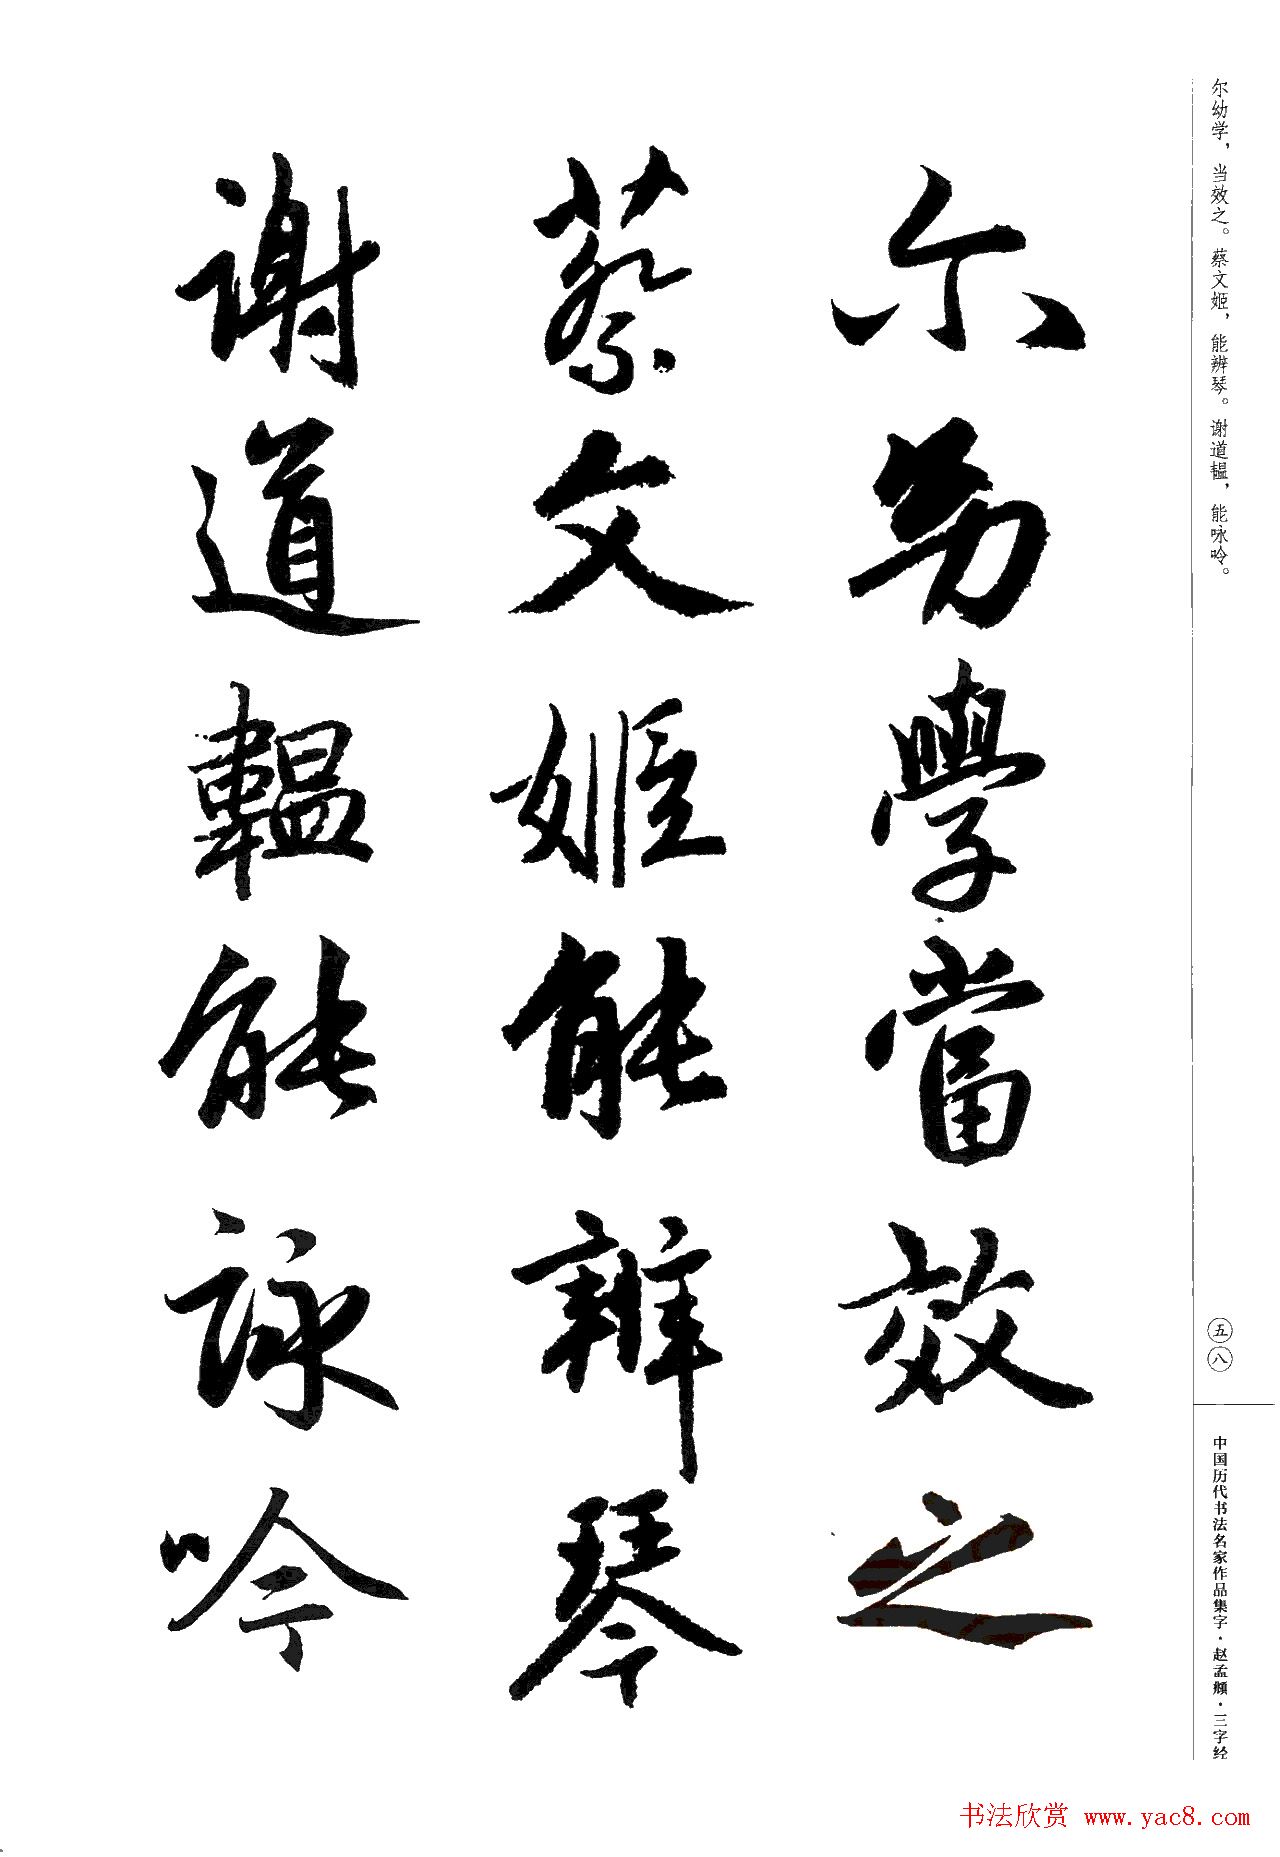 尔幼学，当效之。蔡文姬，能辨琴。谢道韫，能咏吟。
尓幼學當效之
蔡文姬能辨琴
謝道韞能詠吟
五八
中国历代书法名家作品集字·赵孟頫·三字经
书法欣赏 www.yac8.com